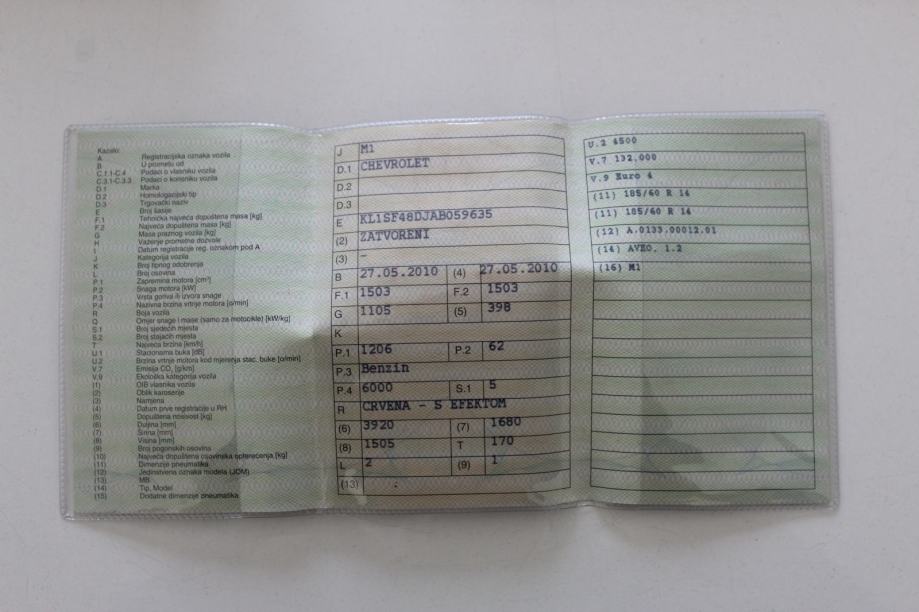 Kazalo:
A Registracijska oznaka vozila
B U prometu od
C.1.1-C.4 Podaci o vlasniku vozila
C.3.1-C.3.3 Podaci o korisniku vozila
D.1 Marka
D.2 Homologacijski tip
D.3 Trgovački naziv
E Broj šasije
F.1 Tehnička najveća dopuštena masa [kg]
F.2 Najveća dopuštena masa [kg]
G Masa praznog vozila [kg]
H Važenje prometne dozvole
I Datum registracije reg. oznakom pod A
J Kategorija vozila
K Broj tipnog odobrenja
L Broj osovina
P.1 Zapremina motora [cm³]
P.2 Snaga motora [kW]
P.3 Vrsta goriva ili izvora snage
P.4 Nazivna brzina vrtnje motora [o/min]
R Boja vozila
Q Omjer snage i mase (samo za motocikle) [kW/kg]
S.1 Broj sjedećih mjesta
S.2 Broj stajaćih mjesta
T Najveća brzina [km/h]
U.1 Stacionarna buka [dB]
U.2 Brzina vrtnje motora kod mjerenja stac. buke [o/min]
V.7 Emisija CO₂ [g/km]
V.9 Ekološka kategorija vozila
(1) OIB vlasnika vozila
(2) Oblik karoserije
(3) Namjena
(4) Datum prve registracije u RH
(5) Dopuštena nosivost [kg]
(6) Duljina [mm]
(7) Širina [mm]
(8) Visina [mm]
(9) Broj pogonskih osovina
(10) Najveća dopuštena osovinska opterećenja [kg]
(11) Dimenzije pneumatika
(12) Jedinstvena oznaka modela (JOM)
(13) MB
(14) Tip, Model
(15) Dodatne dimenzije pneumatika
J M1
D.1 CHEVROLET
D.2
D.3
E KL1SF48DJAB059635
(2) ZATVORENI
(3) -
B 27.05.2010 (4) 27.05.2010
F.1 1503 F.2 1503
G 1105 (5) 398
K
P.1 1206 P.2 62
P.3 Benzin
P.4 6000 S.1 5
R CRVENA - S EFEKTOM
(6) 3920 (7) 1680
(8) 1505 T 170
L 2 (9) 1
(13)
U.2 4500
V.7 132,000
V.9 Euro 4
(11) 185/60 R 14
(11) 185/60 R 14
(12) A.0133.00012.01
(14) AVEO, 1.2
(16) M1